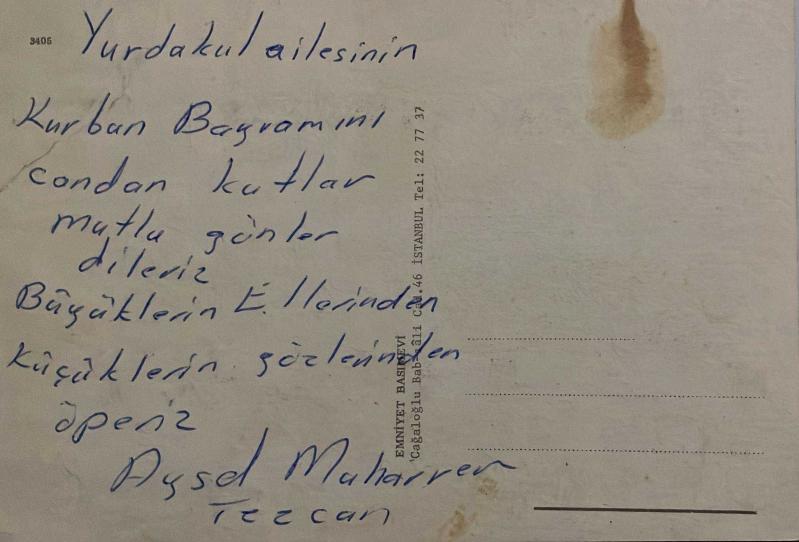 3405
Yurdakul ailesinin
Kurban Bayramını
candan kutlar
mutlu günler
dileriz
Büyüklerin Ellerinden
Küçüklerin gözlerinden
öperiz
Aysel Muharrem
Tezcan
EMNİYET BASIMEVİ
Cağaloğlu Babıâli Cad.46 İSTANBUL Tel: 22 77 37